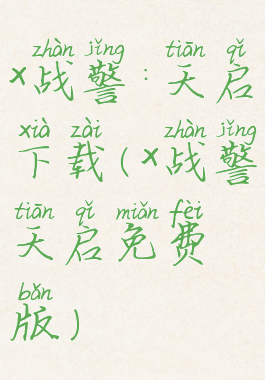 zhàn jǐng tiān qǐ
×战警：天启
xià zài zhàn jǐng
下载(×战警
tiān qǐ miǎn fèi
天启免费
bǎn
版)